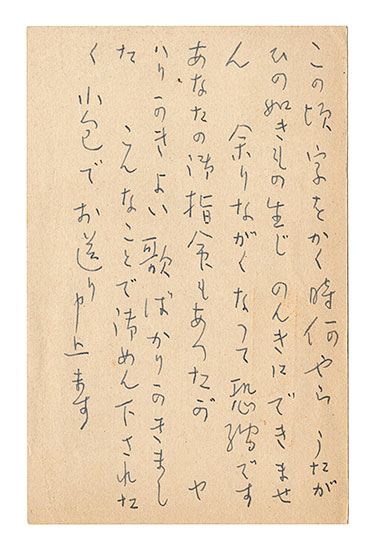 この頃 字をかく時何やら うたが
ひの如きもの生じ のんきにできませ
ん 余りながくなつて恐縮です
あなたの御指令もあつたが や
はりかきよい歌ばかりかきまし
た こんなことで御めん下された
く 小包でお送り申上ます